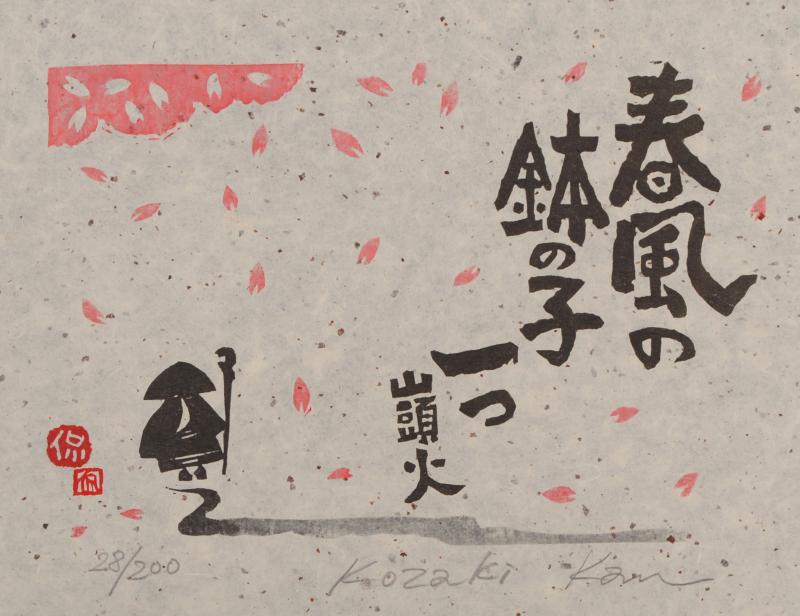 春風の
鉢の子
一つ
山頭火
侃
28/200
Kozaki Kan